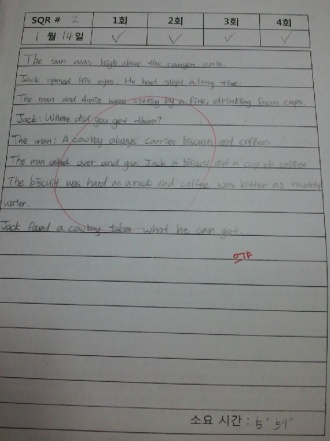 SQR # 2 1회 2회 3회 4회
1월 14일 ✓ ✓ ✓ ✓
The sun was high above the canyon walls.
Jack opened his eyes. He had slept a long time.
The man and Annie were sitting by a fire, drinking from cups.
Jack: Where did you get them?
The man: A cowboy always carries biscuits and coffee.
The man walked over and gave Jack a biscuit and a cup of coffee.
The biscuit was hard as a rock and coffee was bitter as muddy
water.
Jack found a cowboy takes what he can get.
소요 시간 : 5' 59"